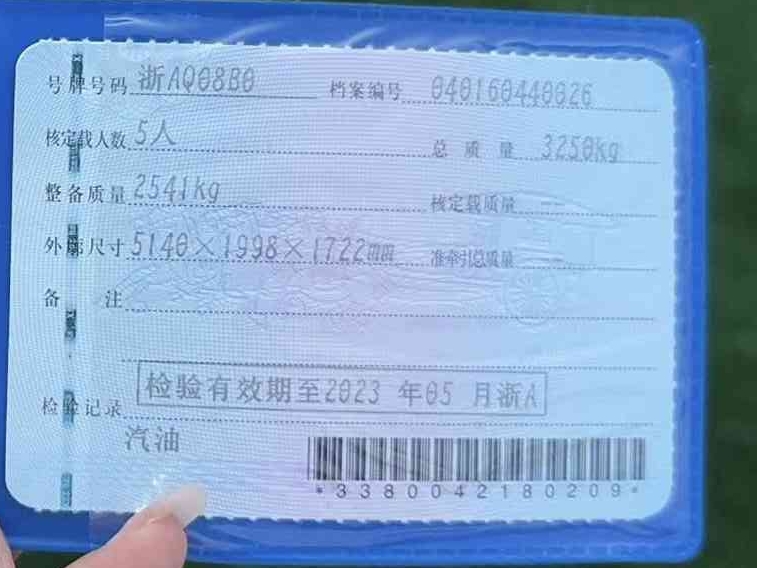 号牌号码 浙AQ08B0 档案编号 040160440026
核定载人数 5人 总质量 3250kg
整备质量 2541kg 核定载质量 --
外廓尺寸 5140×1998×1722mm 准牵引总质量 --
备注
检验记录 检验有效期至2023年05月浙A
汽油
*3380042180209*